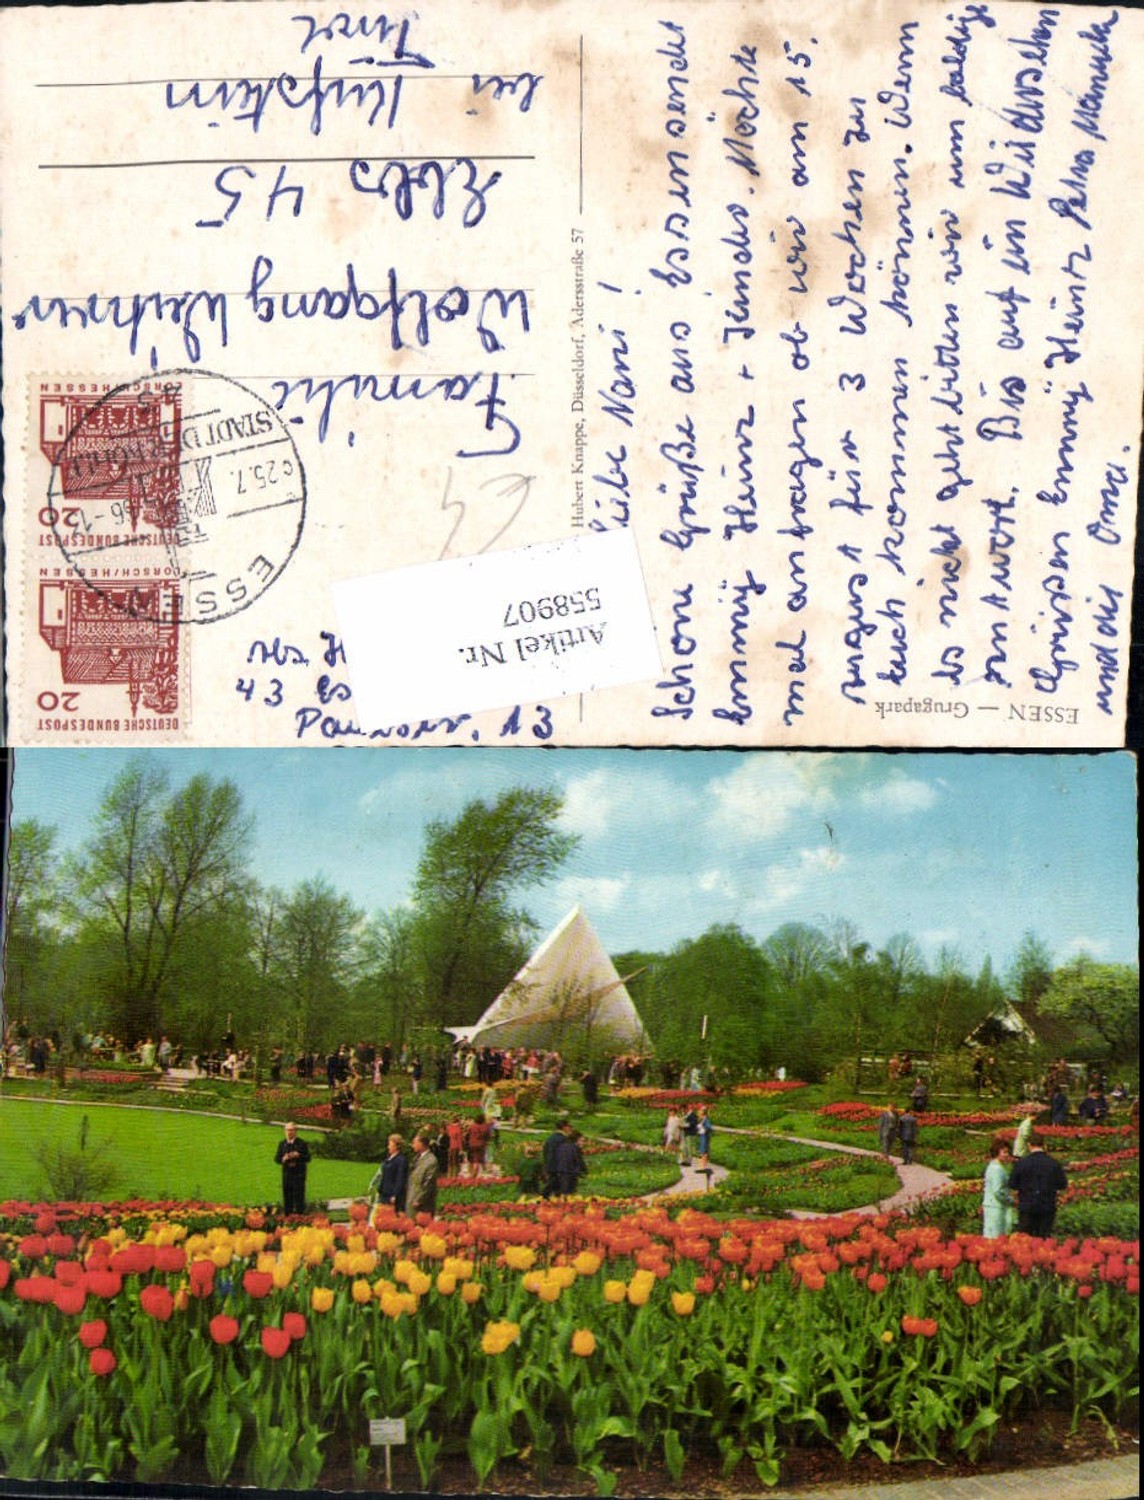 Liebe Nani!
Schöne Grüße aus Essen sendet
Emmij Heinz + Kinder. Möchte
mal anfragen ob wir am 15.
August für 3 Wochen zu
Euch kommen können. Wenn
es nicht geht bitten wir um baldige
Antwort. Bis auf ein Wiedersehen
Grüssen Emmij Heinz Petra Manuela
und die Oma.
ESSEN — Grugapark
Hubert Knappe, Düsseldorf, Adersstraße 57
DEUTSCHE BUNDESPOST
20
LORSCH/HESSEN
DEUTSCHE BUNDESPOST
20
LORSCH/HESSEN
ESSEN
25.7.
43
Familie
Wolfgang
Ebbs 45
bei Kufstein
Tirol
Artikel Nr.
558907
43
13